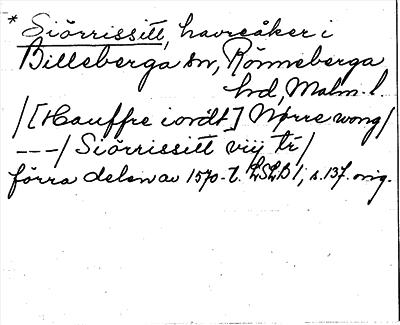 * Siörrissitt, havreåker i
Billeberga sn, Rönneberga
hd, Malm. l.
/[Hauffre iordt] Nørre wong/
---/ Siörrissitt viij tr/
förra delen av 1570-t. LSLB 1, s. 137. orig.